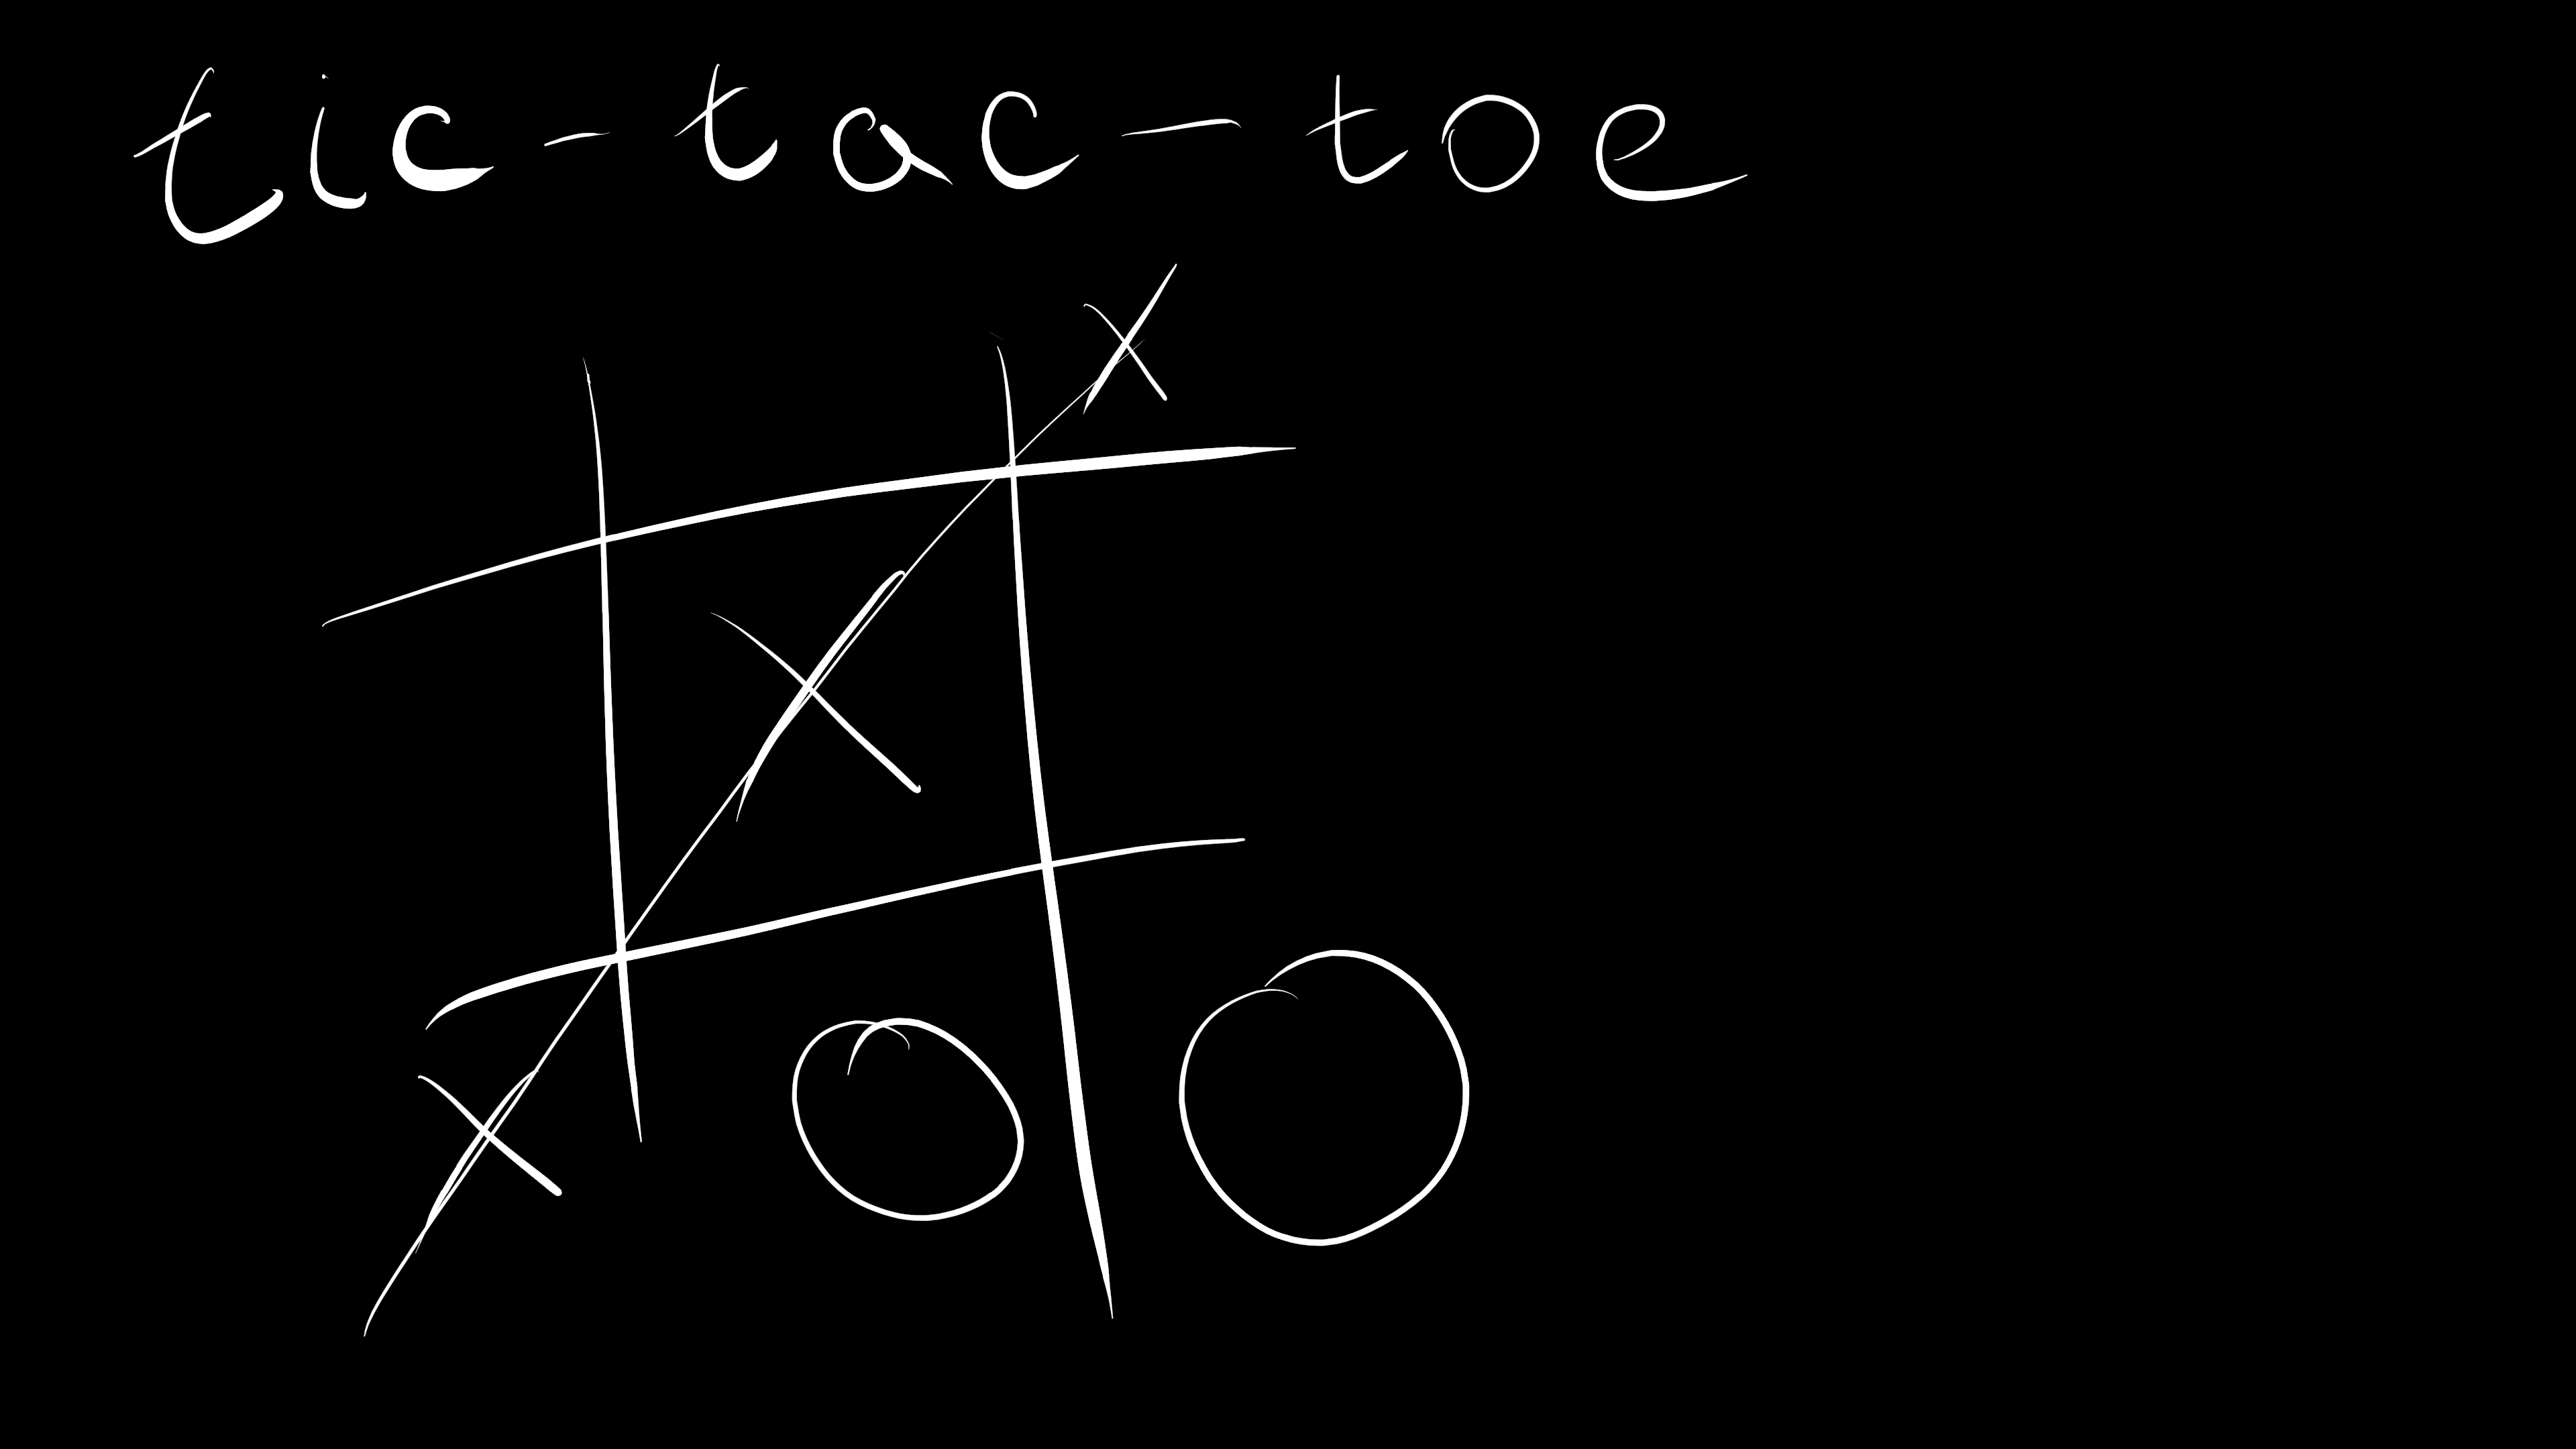 tic-tac-toe
X
X
X O O